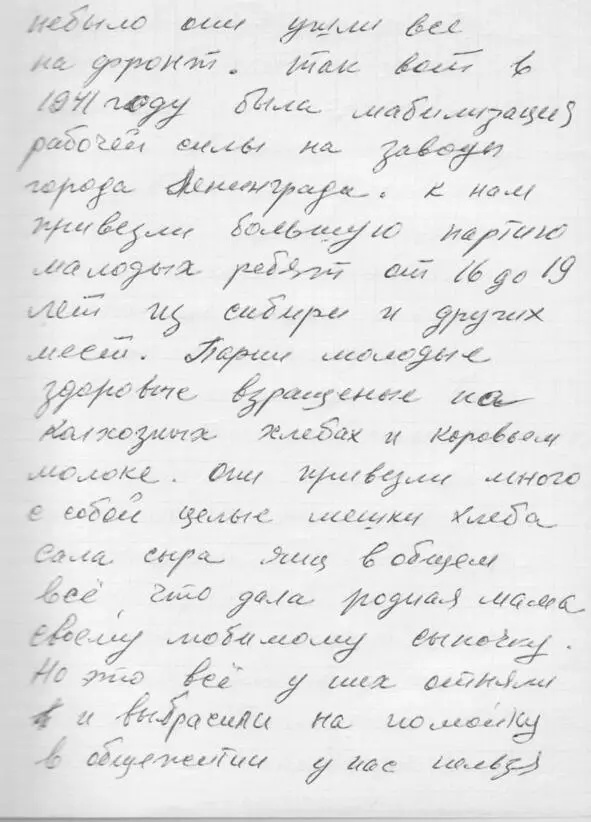 небыло они ушли все
на фронт. Так вот в
1941 году была мабилизация
рабочей силы на заводы
города Ленинграда. К нам
привезли большую партию
малодых ребят от 16 до 19
лет из сибири и других
мест. Парни молодые
здоровые взращеные на
колхозных хлебах и коровьем
молоке. Они привезли много
с собой целые мешки хлеба
сала сыра яиц в общем
всё, что дала родная мама
своему любимому сыночку.
Но это всё у них отняли
и выбрасили на помойку
в общежитии у нас нельзя